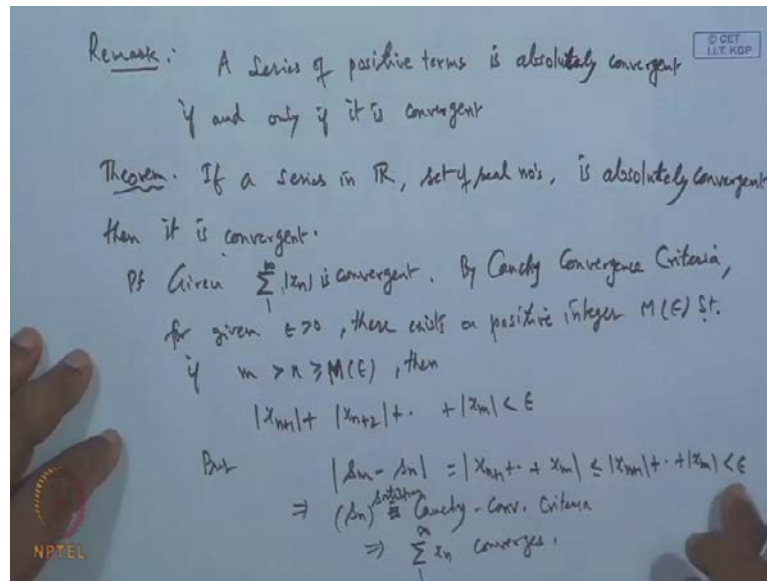 © CET
I.I.T. KGP
Remark: A series of positive terms is absolutely convergent
if and only if it is convergent
Theorem. If a series in ℝ, set of real no's, is absolutely convergent
then it is convergent.
Pf Given ∑_1^∞ |xn| is convergent. By Cauchy Convergence Criteria,
for given ε>0, there exists a positive integer M(ε) St.
if m > n ≥ M(ε), then
|xn+1| + |xn+2| + · + |xm| < ε
But |sm - sn| = |xn+1 + · + xm| ≤ |xn+1| + · + |xm| < ε
⇒ (sn) satisfies Cauchy-Conv. Criteria
⇒ ∑_1^∞ xn converges.
NPTEL